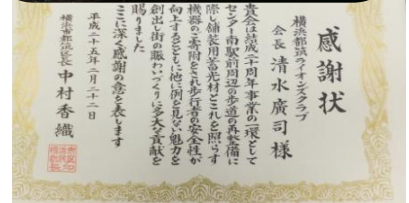 感謝状
横浜都筑ライオンズクラブ
会長 清水廣司様
貴会は結成二十周年事業の一環として
センター南駅前周辺の歩道の再整備に
際し舗装用蓄光材とこれを照らす
機器のご寄附をされ歩行者の安全性が
向上するとともに他に例を見ない魅力を
創出し街の賑わいづくりに多大な貢献を
賜りました
ここに深く感謝の意を表します
平成二十五年二月二十二日
横浜市都筑区長 中村香織